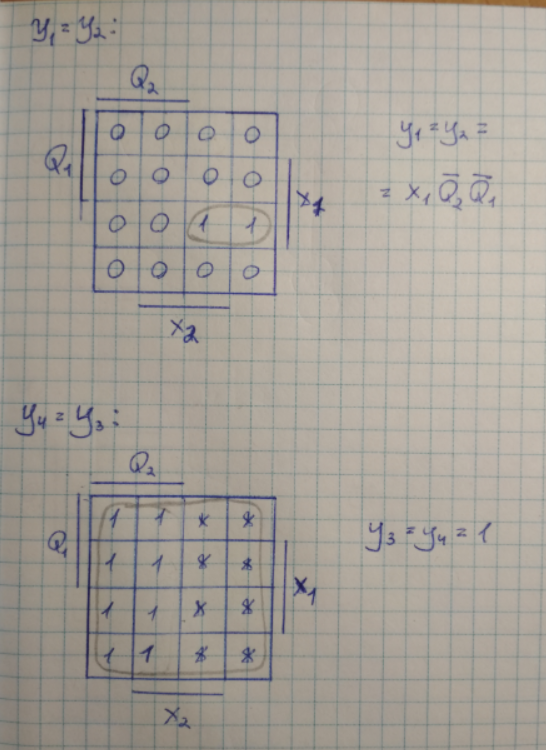 y₁ = y₂ :
Q₂
Q₁
0 0 0 0
0 0 0 0
0 0 1 1
0 0 0 0
x₁
x₂
y₁ = y₂ =
= x₁ Q̅₂ Q̅₁
y₄ = y₃ :
Q₂
Q₁
1 1 x x
1 1 x x
1 1 x x
1 1 x x
x₁
x₂
y₃ = y₄ = 1